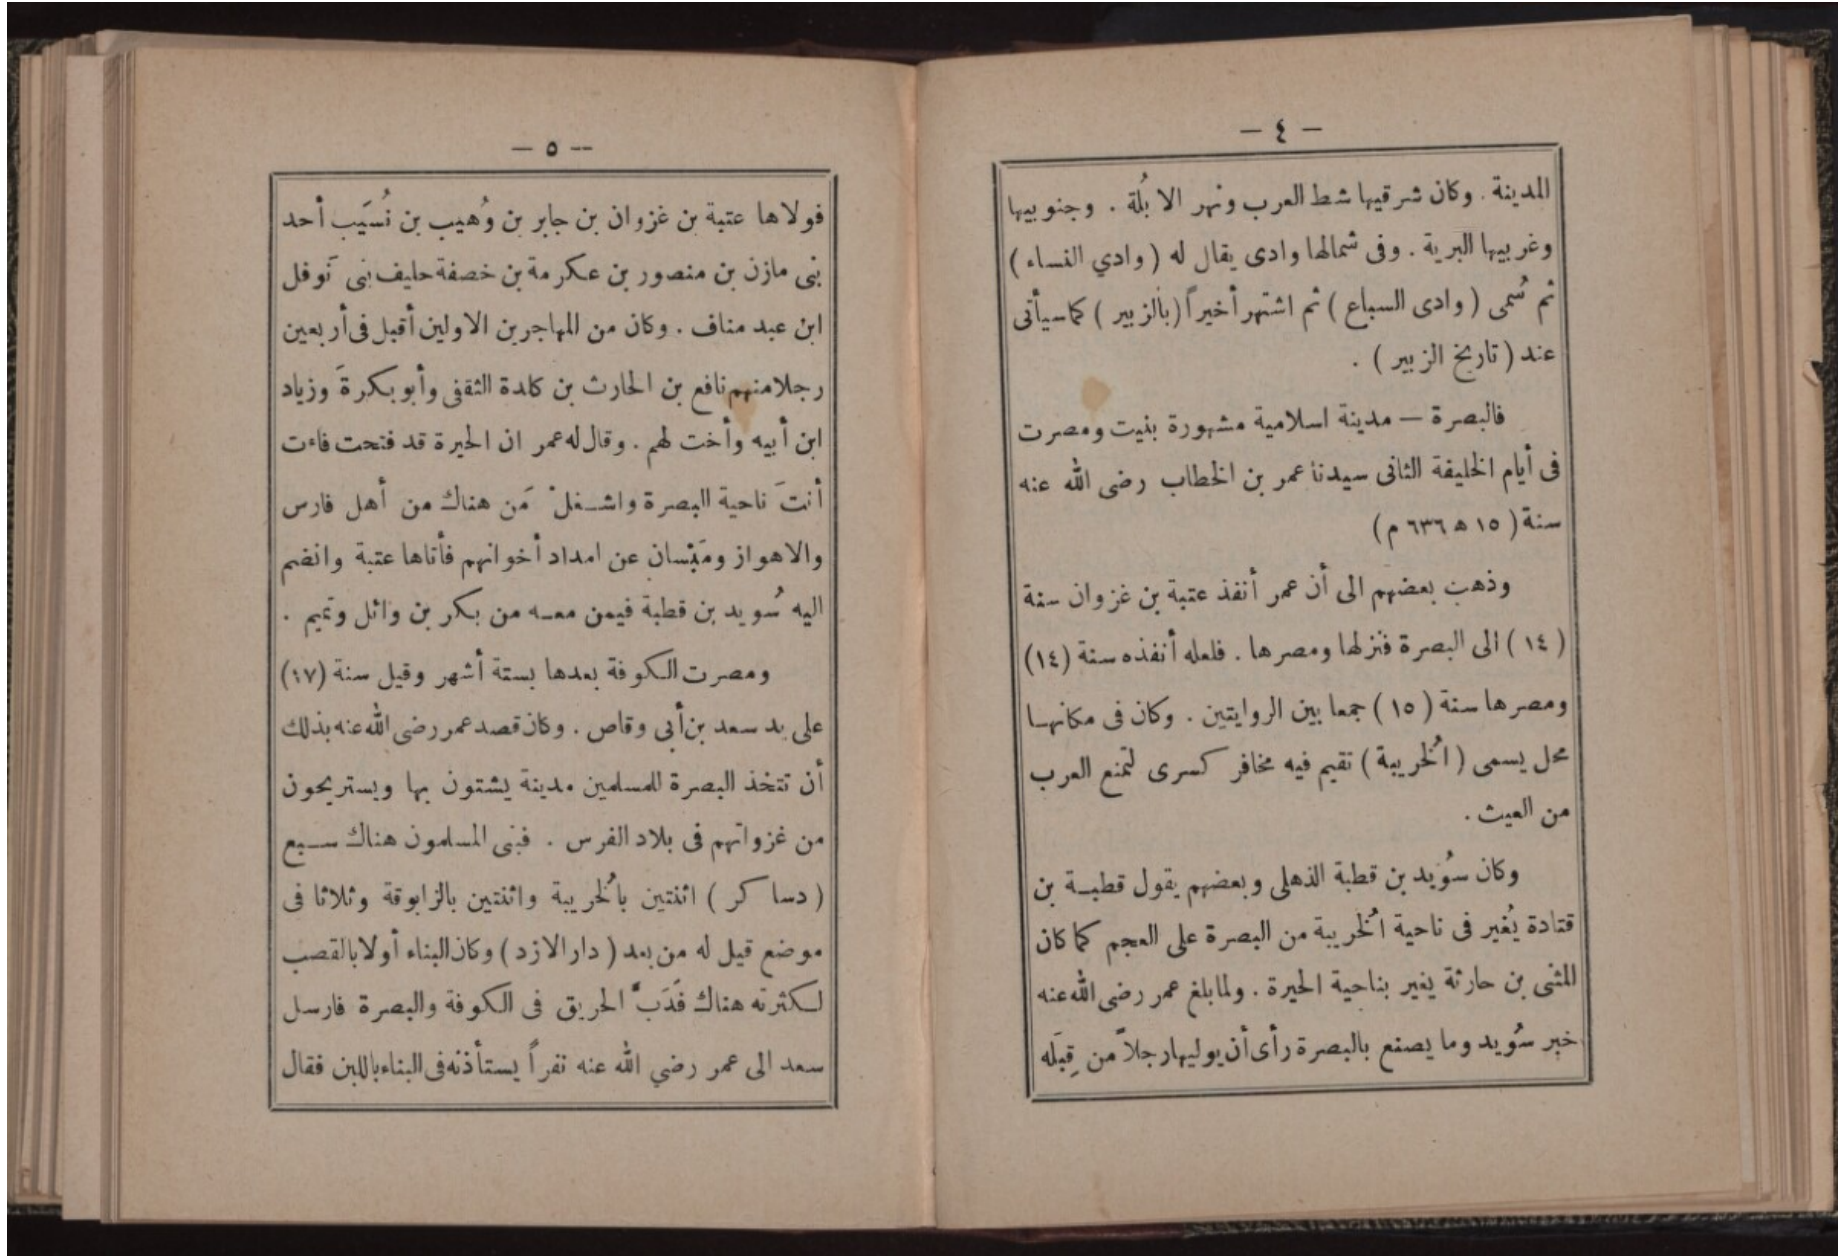 — ٤ —
المدينة . وكان شرقيها شط العرب ونهر الابُلة . وجنوبيها
وغربيها البرية . وفى شمالها وادى يقال له ( وادي النساء )
ثم سُمى ( وادى السباع ) ثم اشتهر أخيراً ( بالزبير ) كما سيأتى
عند ( تاريخ الزبير ) .
فالبصرة — مدينة اسلامية مشهورة بنيت ومصرت
فى أيام الخليفة الثانى سيدنا عمر بن الخطاب رضى الله عنه
سنة ( ١٥ ھ ٦٣٦ م )
وذهب بعضهم الى أن عمر أنفذ عتبة بن غزوان سنة
( ١٤ ) الى البصرة فنزلها ومصرها . فلعله أنفذه سنة (١٤)
ومصرها سنة ( ١٥ ) جمعا بين الروايتين . وكان فى مكانهــا
محل يسمى ( الُخريبة ) تقيم فيه مخافر كسرى لتمنع العرب
من العيث .
وكان سوَُيد بن قطبة الذهلى وبعضهم يقول قطبــة بن
قتادة يُغير فى ناحية الُخريبة من البصرة على العجم كما كان
المثنى بن حارثة يغير بناحية الحيرة . ولما بلغ عمر رضى الله عنه
خبر سُويد وما يصنع بالبصرة رأى أن يوليها رجلاً من قِبَله
— ٥ —
فولاها عتبة بن غزوان بن جابر بن وُهيب بن نُسَيَب أحد
بنى مازن بن منصور بن عكرمة بن خصفة حليف بنى نَوفل
ابن عبد مناف . وكان من المهاجرين الاولين أقبل فى أربعين
رجلا منهم نافع بن الحارث بن كلدة الثقفى وأبو بكرةَ وزياد
ابن أبيه وأخت لهم . وقال له عمر ان الحيرة قد فتحت فاءت
أنتَ ناحية البصرة واشــغلْ مَن هناك من أهل فارس
والاهواز ومَيْسان عن امداد أخوانهم فأتاها عتبة وانضم
اليه سُويد بن قطبة فيمن معــه من بكر بن وائل وتميم .
ومصرت الكوفة بعدها بستة أشهر وقيل سنة (١٧)
على يد سعد بن أبى وقاص . وكان قصد عمر رضى الله عنه بذلك
أن تتخذ البصرة للمسلمين مدينة يشتون بها ويستريحون
من غزواتهم فى بلاد الفرس . فبنى المسلمون هناك ســبع
( دساكر ) اثنتين بالُخريبة واثنتين بالزابوقة وثلاثا فى
موضع قيل له من بعد ( دار الازد ) وكان البناء أولا بالقصب
لــكثرته هناك فَدَبَّ الحريق فى الكوفة والبصرة فارسل
سعد الى عمر رضي الله عنه نفراً يستأذنه فى البناء باللبن فقال